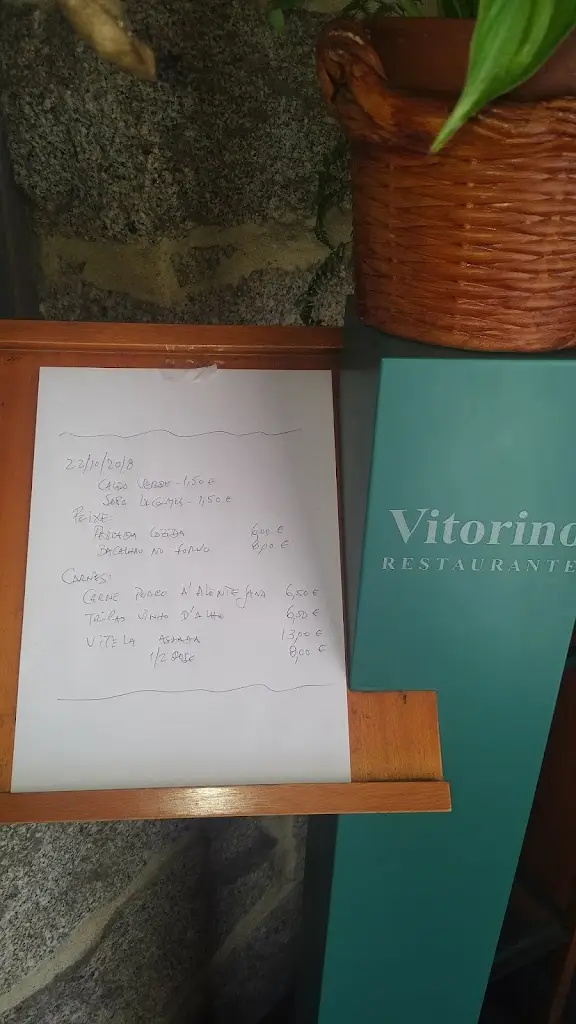 22/10/2018
CALDO VERDE - 1,50 €
SOPA LEGUMES - 1,50 €
PEIXE:
PESCADA COZIDA 6,00 €
BACALHAU NO FORNO 8,00 €
CARNES:
CARNE PORCO A'ALENTEJANA 6,50 €
TRIPAS VINHO D'ALHO 6,50 €
VITELA ASSADA 13,00 €
1/2 DOSE 8,00 €
Vitorino
RESTAURANTE